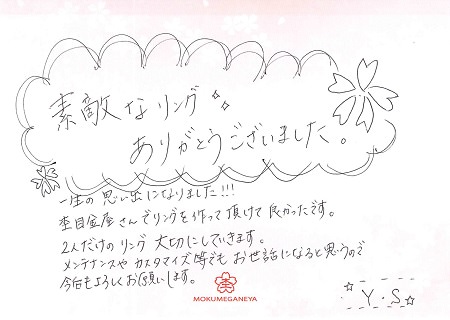 素敵なリング
ありがとうございました。
一生の思い出になりました!!!
杢目金屋さんでリングを作って頂けて良かったです。
2人だけのリング大切にしていきます。
メンテナンスやカスタマイズ等でもお世話になると思うので
今后もよろしくお願いします。
MOKUMEGANEYA
Y.S